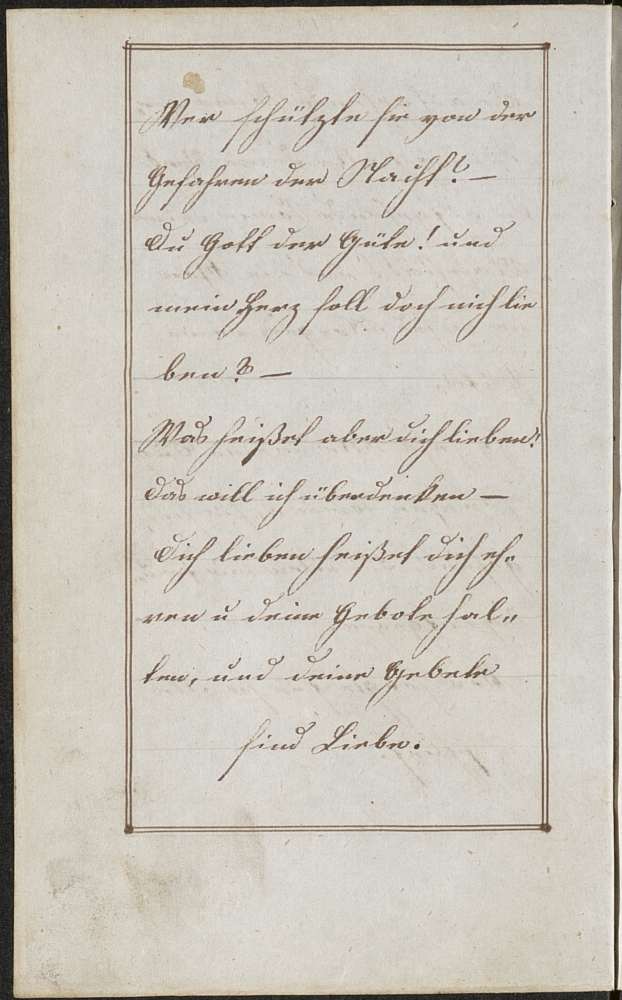 Wer schützte sie von der
Gefahren der Nacht? –
Du Gott der Güte! und
mein Herz soll dich nich lie
ben? –
Was heißet aber dich lieben?
das will ich überdenken –
Dich lieben heißet dich eh„
ren u deine Gebote hal„
ten, und deine Gebete
sind Liebe.